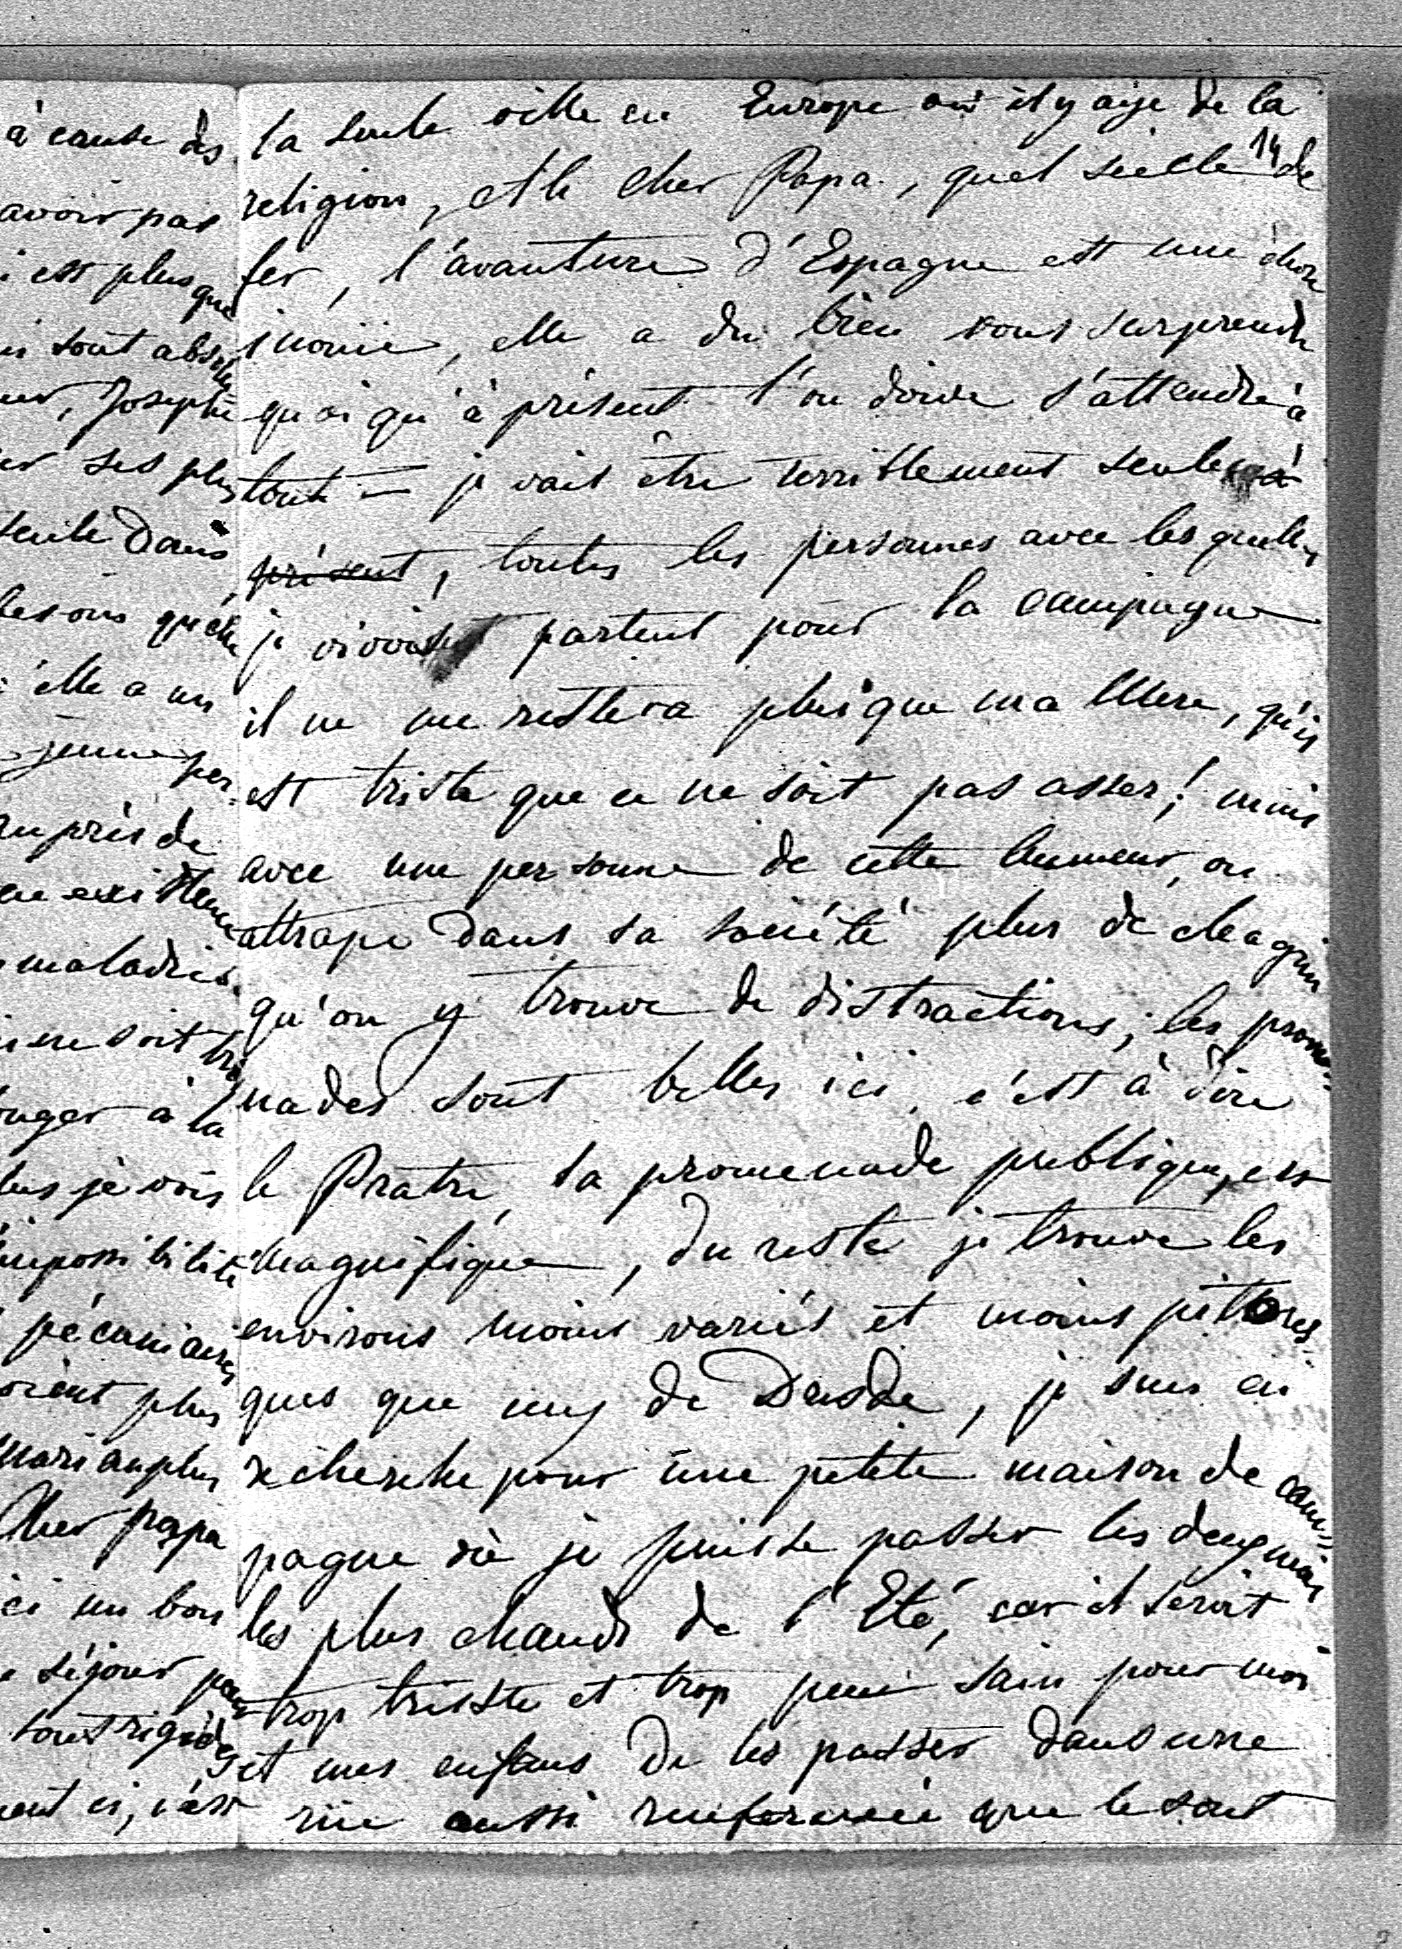 à cause des
avoir pas
i est plus que
sont absolu
Joseph
ses plus
seule dans
besoins qu'elle
elle a un
jeune per-
auprès de
existence
maladies.
soit
à la
plus je vois
impossibilité
pécuniaires
soient plus
mari au plus
Cher papa
ici un bon
séjour pour
sont rigides
ci, c'est
la seule ville en Europe où il y aije de la
religion, et le cher Papa, quel siècle de
14
fer, l'avanture d'Espagne est une chose
inouie, elle a du bien vous surprendre
quoi qu'à présent l'on doive s'attendre à
tout — je vais être terriblement seule à
présent, toutes les personnes avec lesquelles
je vivois partent pour la campagne
il ne me restera plus que ma Mere, qu'il
est triste que ce ne soit pas assez! mais
avec une personne de cette humeur, on
attrape dans sa société plus de chagrin
qu'on y trouve de distractions; les prome=
nades sont belles ici, c'est à dire
le Pratre, la promenade publique, est
magnifique, du reste je trouve les
environs moins variés et moins pittores-
ques que ceux de Dresde, je suis en
recherche pour une petite maison de cam=
pagne où je puisse passer les deux mois
les plus chauds de l'Eté, car il seroit
trop triste et trop peu sain pour moi
et mes enfans de les passer dans une
rüe aussi renfermée que le sont